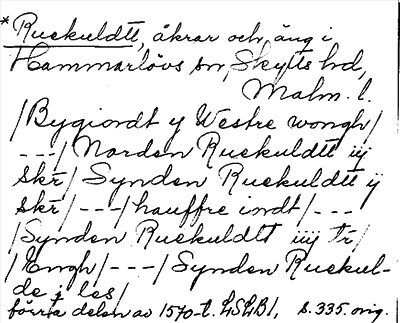 * Ruekuldtt, åkrar och äng i
Hammarlövs sn, Skytts hd,
Malm. l.
/Bygiordt y Westre wongh/
---/Norden Ruekuldtt iij
skr/Synden Ruekuldtt ij
skr/---/hauffre iordt/---
/Synden Ruekuldtt iiij tr/
/Engh/---/Synden Ruekul-
de j les/
förra delen av 1570-t. LSLB1, s. 335. orig.